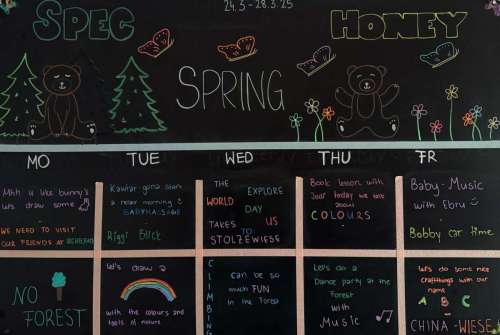 24.3 - 28.3.25
SPEC HONEY
SPRING
MO TUE WED THU FR
Mhh u like bunny's
let's draw some
WE NEED TO VISIT
OUR FRIENDS AT
Kavkar gona start
a relax morning
Riggi Blick
THE EXPLORE
WORLD DAY
TAKES US
TO
STOLZEWIESE
Book lesson with
today we talk
about
COLOURS
Baby-Music
with Ebru
-
Bobby car time
NO
FOREST
let's draw a
with the colours and
tools of nature
CLIMBING
can be so
much FUN
in the forest
Let's do a
Dance party at the
Forest
with
Music
let's do some nice
craftthings with our
name
A B C
-
CHINA-WIESE